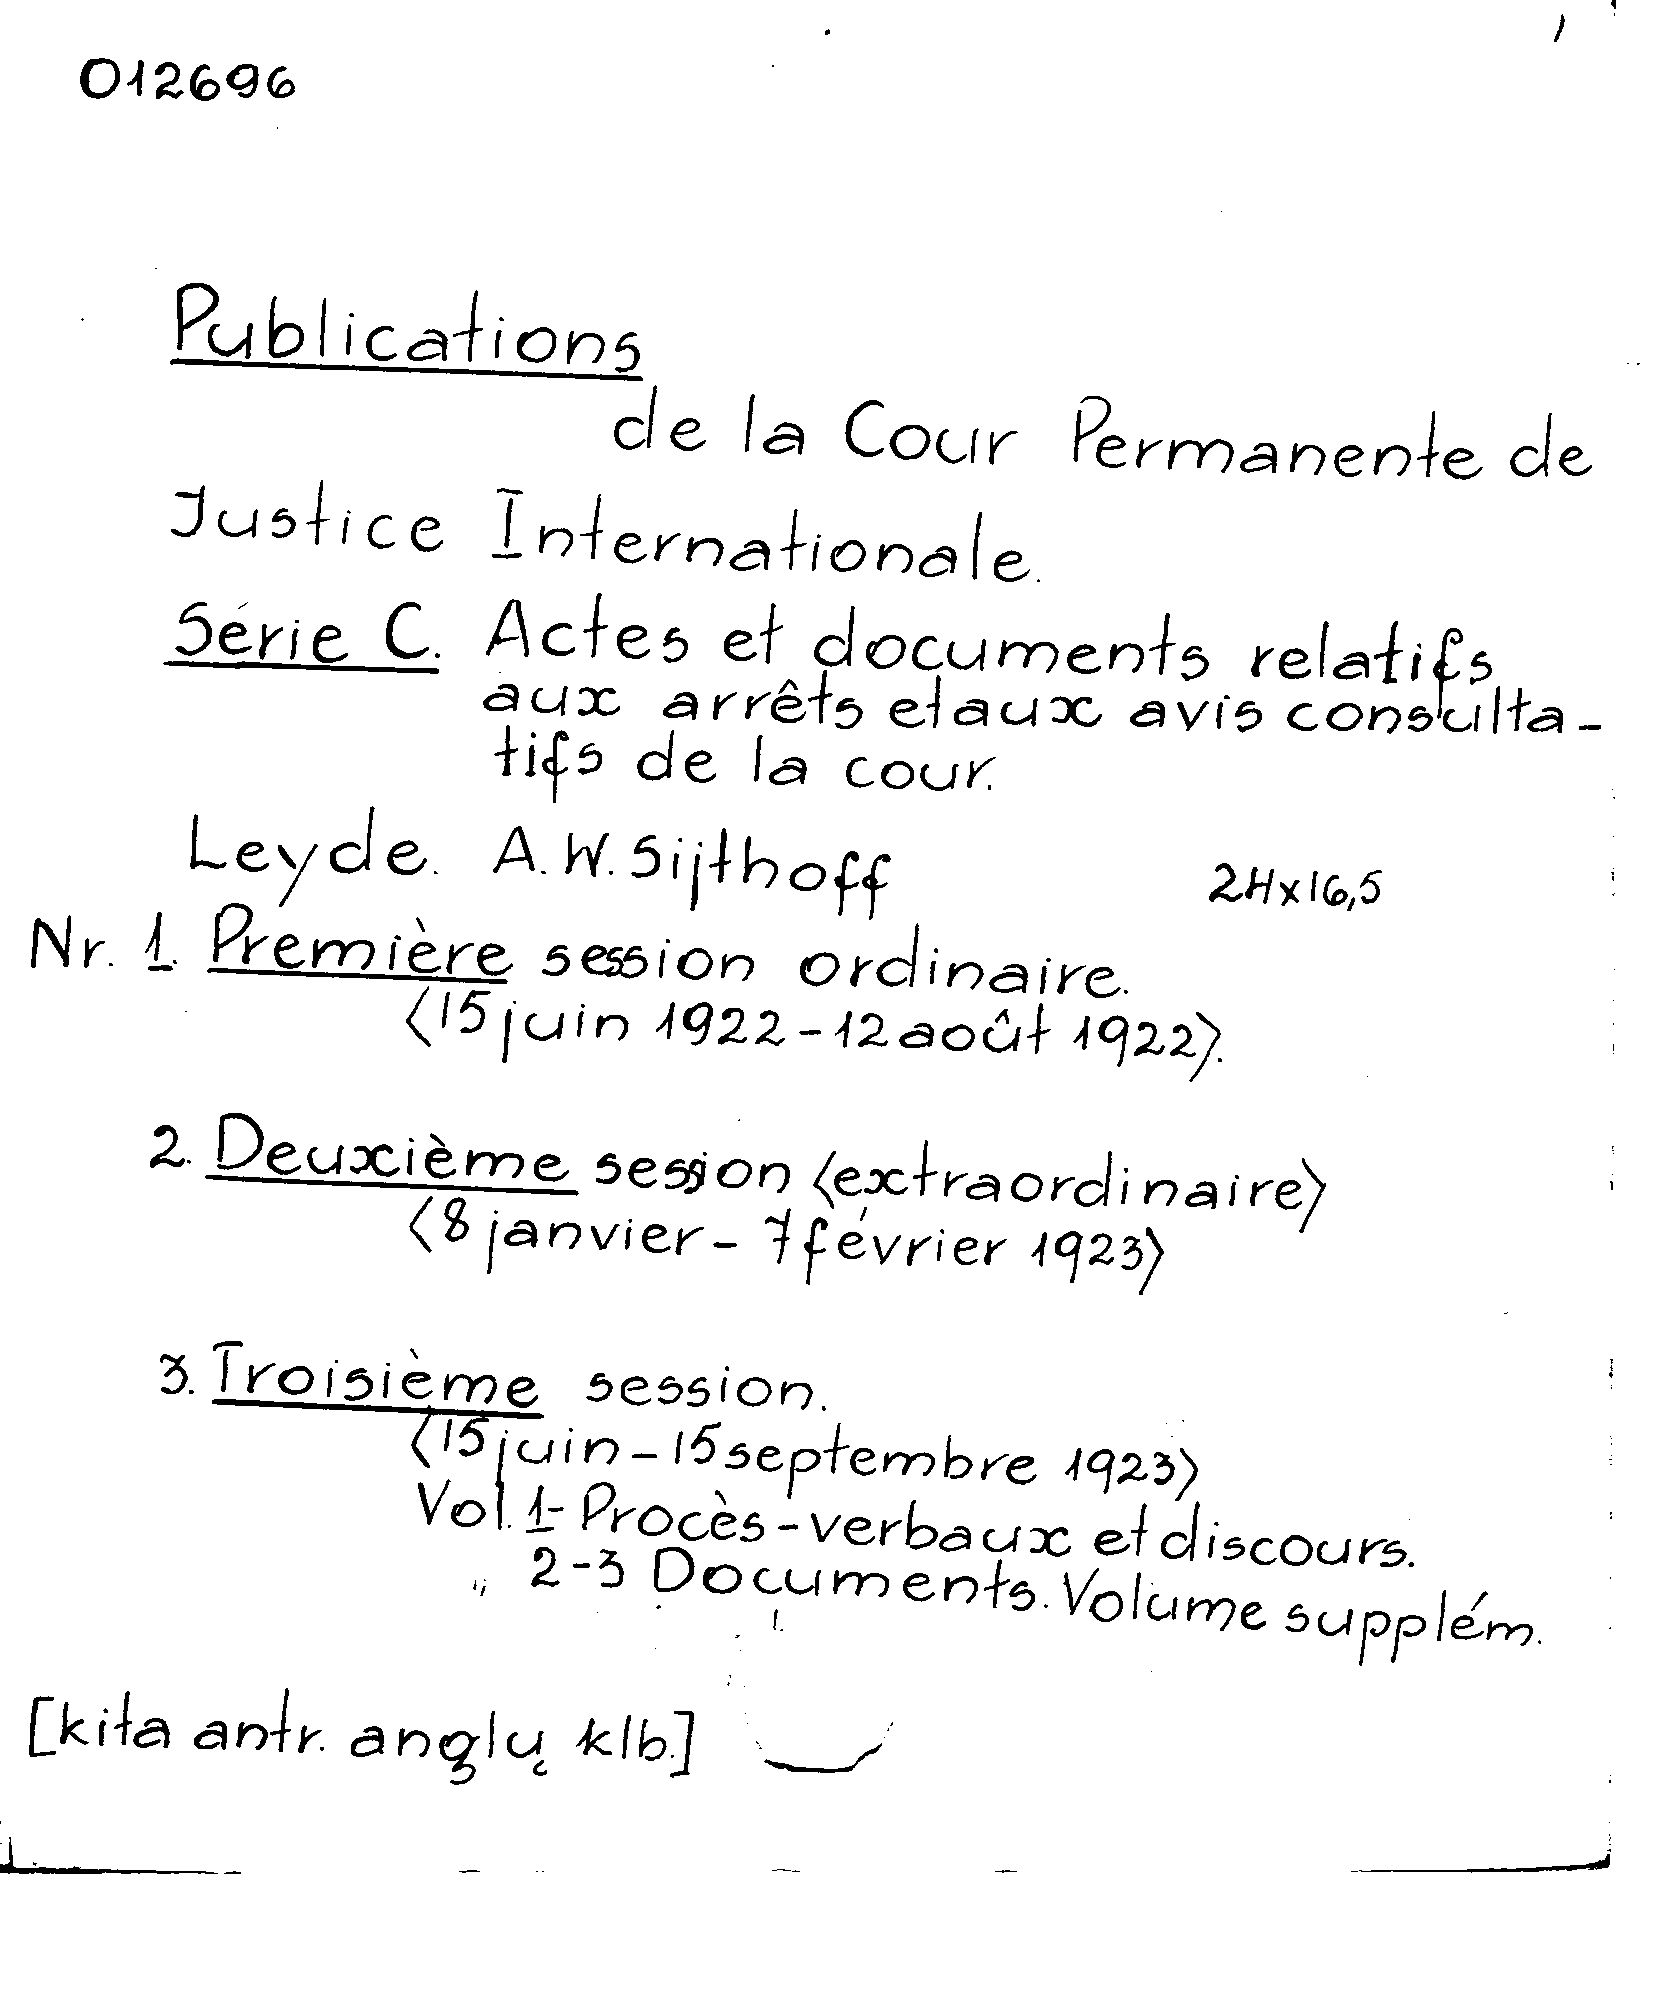 012696
Publications
de la Cour Permanente de
Justice Internationale.
Série C. Actes et documents relatifs
aux arrêts et aux avis consulta-
tifs de la cour.
Leyde. A.W. Sijthoff 24x16,5
Nr. 1. Première session ordinaire.
<15 juin 1922 - 12 août 1922>.
2. Deuxième session <extraordinaire>
<8 janvier - 7 février 1923>
3. Troisième session.
<15 juin - 15 septembre 1923>
Vol. 1- Procès-verbaux et discours.
„ 2-3 Documents. Volume supplém.
[kita antr. anglų klb.]